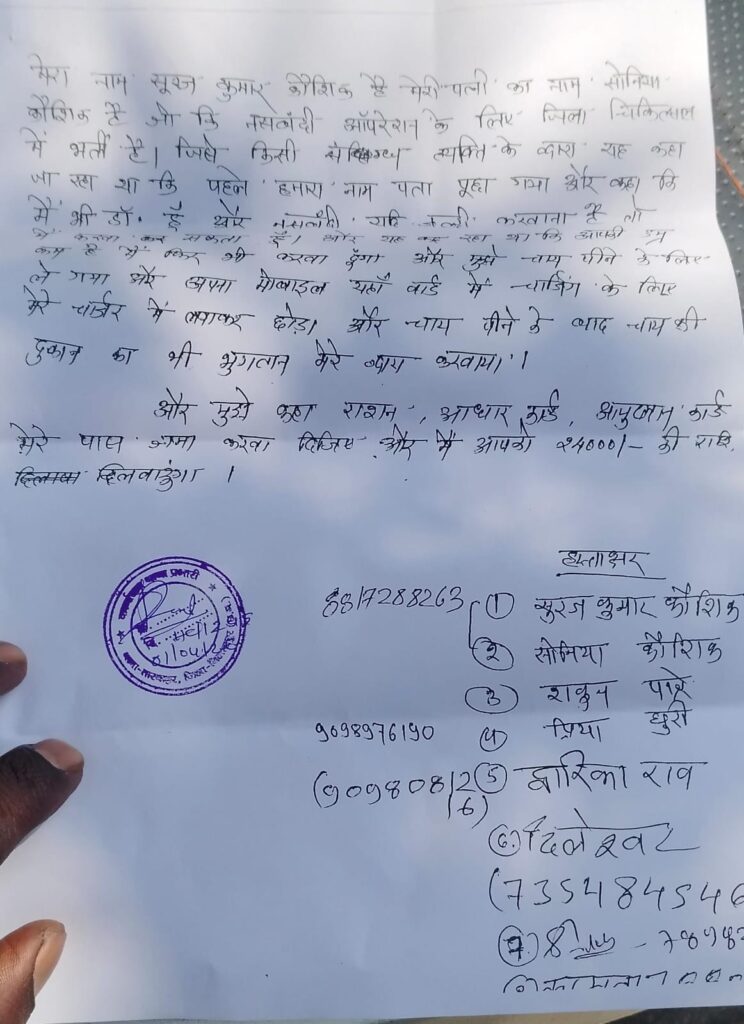 मेरा नाम सूरज कुमार कौशिक है मेरी पत्नी का नाम सोनिया
कौशिक है जो कि नसबंदी ऑपरेशन के लिए जिला चिकित्साल
में भर्ती है। जिसे किसी व्यक्ति के द्वारा यह कहा
जा रहा था कि पहले हमारा नाम पता पूछा गया और कहा कि
मैं भी डॉ. हूँ और नसबंदी यदि जल्दी करवाना है तो
मैं करवा सकता हूँ। और यह कह रहा था कि आपकी उम्र
कम है मैं फिर भी करवा दूंगा और मुझे चाय पीने के लिए
ले गया और अपना मोबाइल यहाँ वार्ड में चार्जिंग के लिए
मेरे चार्जर में लगाकर छोड़ा और चाय पीने के बाद चाय की
दुकान का भी भुगतान मेरे द्वारा करवाया।
और मुझे कहा राशन, आधार कार्ड, आयुष्मान कार्ड
मेरे पास जमा करवा दिजिए और मैं आपको 24000/- की राशि
दिलवाउंगा ।
हस्ताक्षर
8817288263 ① सुरज कुमार कौशिक
② सोनिया कौशिक
③ शकुन पारे
9098976190 ④ प्रिया धुरी
(909808126) ⑤ द्वारिका राव
⑥ दिलेश्वर
(735484546
⑦